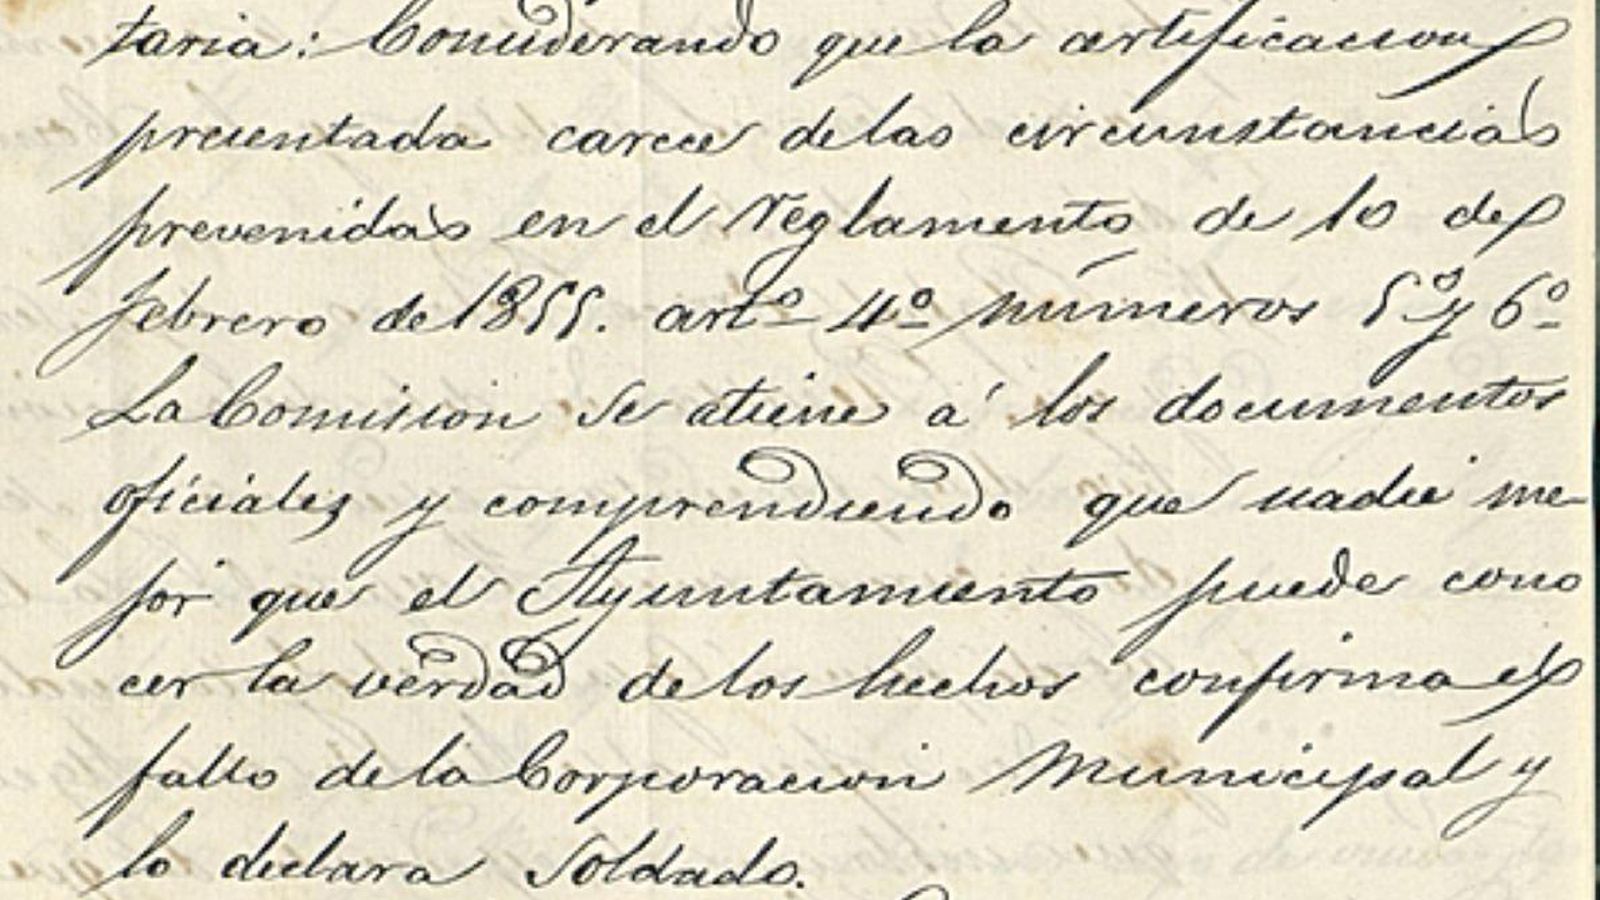 taria: Considerando que la certificacion
presentada carece de las circunstancias
prevenidas en el reglamento de 10 de
febrero de 1855. artº 4º números 5º y 6º
La Comision se atiene á los documentos
oficiales y comprendiendo que nadie me-
jor que el Ayuntamiento puede cono
cer la verdad de los hechos confirma el
fallo de la Corporacion Municipal y
lo declara Soldado.